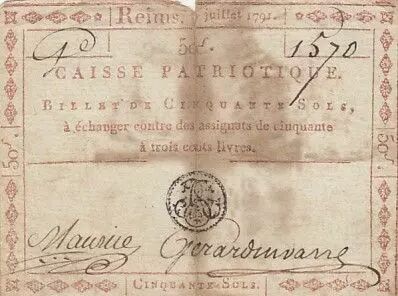 Reims, juillet 1791.
50ˢ.
1570
CAISSE PATRIOTIQUE.
BILLET DE CINQUANTE SOLS,
à échanger contre des assignats de cinquante
à trois cents livres.
50ˢ.
50ˢ.
Maurice Gerardin
CINQUANTE SOLS.